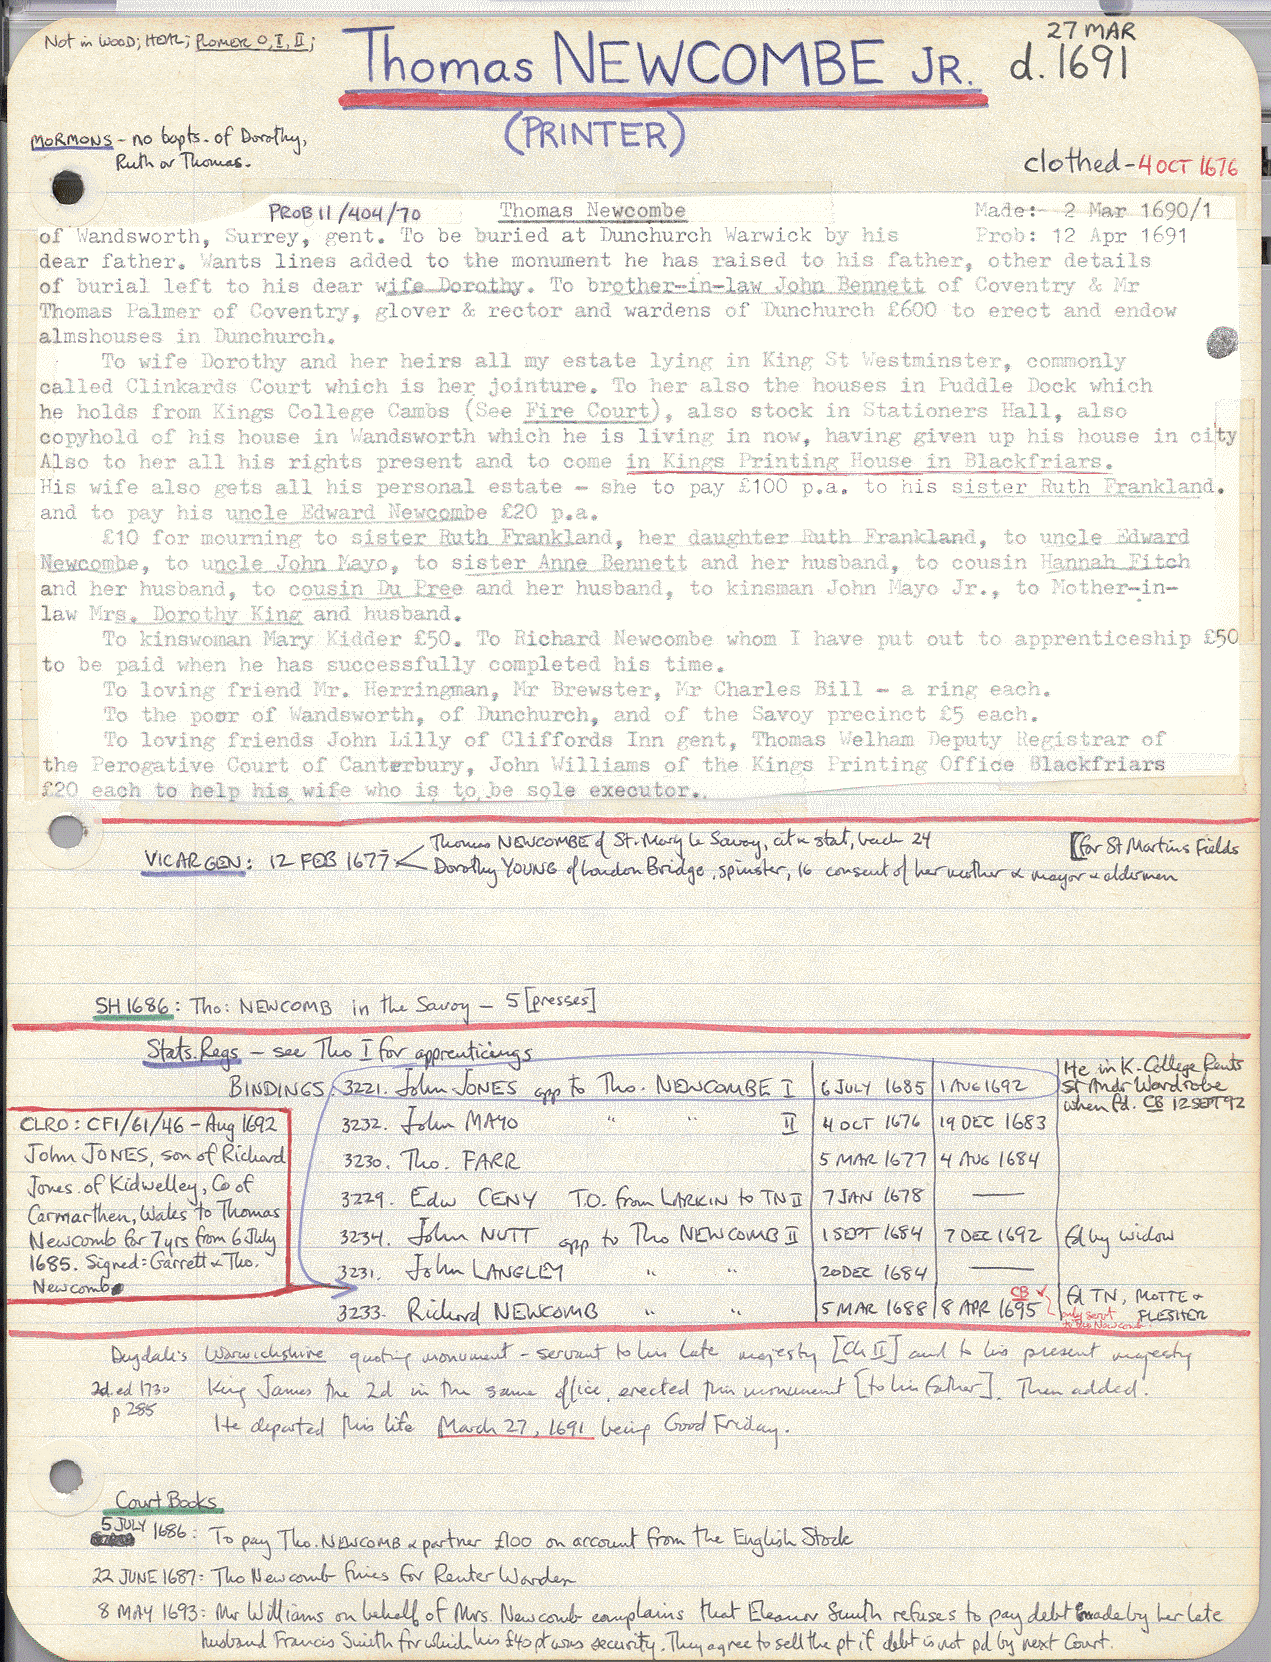 Not in WOOD; HEAL; PLOMER O, I, II;
Thomas NEWCOMBE JR.
27 MAR
d. 1691
(PRINTER)
MORMONS - no bapts. of Dorothy,
Ruth or Thomas.
clothed - 4 OCT 1676
PROB 11/404/70 Thomas Newcombe Made:- 2 Mar 1690/1
of Wandsworth, Surrey, gent. To be buried at Dunchurch Warwick by his Prob: 12 Apr 1691
dear father. Wants lines added to the monument he has raised to his father, other details
of burial left to his dear wife Dorothy. To brother-in-law John Bennett of Coventry & Mr
Thomas Palmer of Coventry, glover & rector and wardens of Dunchurch £600 to erect and endow
almshouses in Dunchurch.
To wife Dorothy and her heirs all my estate lying in King St Westminster, commonly
called Clinkards Court which is her jointure. To her also the houses in Puddle Dock which
he holds from Kings College Cambs (See Fire Court), also stock in Stationers Hall, also
copyhold of his house in Wandsworth which he is living in now, having given up his house in city
Also to her all his rights present and to come in Kings Printing House in Blackfriars.
His wife also gets all his personal estate - she to pay £100 p.a. to his sister Ruth Frankland.
and to pay his uncle Edward Newcombe £20 p.a.
£10 for mourning to sister Ruth Frankland, her daughter Ruth Frankland, to uncle Edward
Newcombe, to uncle John Mayo, to sister Anne Bennett and her husband, to cousin Hannah Fitch
and her husband, to cousin Du Pree and her husband, to kinsman John Mayo Jr., to Mother-in-
law Mrs. Dorothy King and husband.
To kinswoman Mary Kidder £50. To Richard Newcombe whom I have put out to apprenticeship £50
to be paid when he has successfully completed his time.
To loving friend Mr. Herringman, Mr Brewster, Mr Charles Bill - a ring each.
To the poor of Wandsworth, of Dunchurch, and of the Savoy precinct £5 each.
To loving friends John Lilly of Cliffords Inn gent, Thomas Welham Deputy Registrar of
the Perogative Court of Canterbury, John Williams of the Kings Printing Office Blackfriars
£20 each to help his wife who is to be sole executor.
VICAR GEN: 12 FEB 1677
Thomas NEWCOMBE of St. Mary le Savoy, cit & stat, bach 24
Dorothy YOUNG of London Bridge, spinster, 16 consent of her mother & mayor & aldermen
[for St Martins Fields
SH 1686: Tho: NEWCOMB in the Savoy - 5 [presses]
Stats. Regs - see Tho I for apprenticings
BINDINGS 3221. John JONES app to Tho. NEWCOMBE I 6 JULY 1685 1 AUG 1692
He in K. College Rents
St Andr Wardrobe
when fd. CB 12 SEPT 92
3232. John MAYO " " II 4 OCT 1676 19 DEC 1683
3230. Tho. FARR 5 MAR 1677 4 AUG 1684
3229. Edw CENY T.O. from LARKIN to TN II 7 JAN 1678 —
3234. John NUTT app to Tho NEWCOMB II 1 SEPT 1684 7 DEC 1692 fd by widow
3231. John LANGLEY " " 20 DEC 1684 —
3233. Richard NEWCOMB " " 5 MAR 1688 8 APR 1695 fd TN, MOTTE & FLESHER
CB
only servt
CLRO: CF1/61/46 - Aug 1692
John JONES, son of Richard
Jones of Kidwelley, Co of
Carmarthen, Wales to Thomas
Newcomb for 7 yrs from 6 July
1685. Signed = Garrett & Tho.
Newcomb
Dugdale's Warwickshire quoting monument - servant to his late majesty [Ch II] and to his present majesty
2d. ed 1730
p 285
King James the 2d in the same office, erected this monument [to his father]. Then added.
He departed this life March 27, 1691 being Good Friday.
Court Books
5 JULY 1686: To pay Tho. NEWCOMB & partner £100 on account from the English Stock
22 JUNE 1687: Tho Newcomb fines for Renter Warden
8 MAY 1693: Mr Williams on behalf of Mrs. Newcomb complains that Eleanor Smith refuses to pay debt made by her late
husband Francis Smith for which his £40 pt was security. They agree to sell the pt if debt is not pd by next Court.